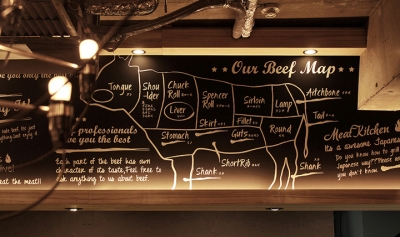 ★★ Our Beef Map ★★
Tongue
Shou
-lder
Chuck
Roll
Liver
Spencer
Roll
Sirloin
Lamp
Aitchbone
Fillet
Skirt
Stomach
Guts
Round
Tail
Shank
ShortRib
Shank
ve you only the best
professionals
ve you the best
Each part of the beef has own
character of its taste, Feel free to
ask anything to us about beef.
eat the meat!!
Meat Kitchen
Its a awesome Japanese
Do you know how to gril
Japanese way??Please as
you don't know.